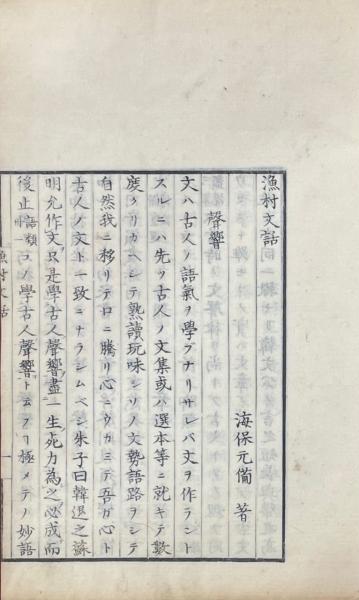 漁村文話
海保元備 著
聲響
文ハ古人ノ語氣ヲ學ブナリサレバ文ヲ作ラント
スルニハ先ヅ古人ノ文集或ハ選本等ニ就キテ數
度クリカヘシテ熟讀玩味シソノ文勢語路ヲシテ
自然我ニ移リテ口ニ騰リ心ニウカミテ吾ガ心ト
古人ノ文ト一致ニナラシムベシ朱子曰韓退之蘇
明允作文只是學古人聲響盡一生死力為之必成而
後止語類コノ學古人聲響ト云フヿ極メテノ妙語
漁村文話 一